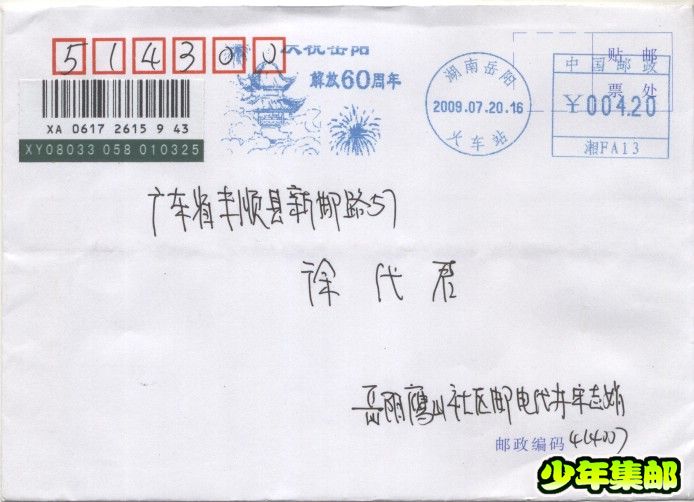 514300
庆祝岳阳
解放60周年
XA 0617 2615 9 43
XY08033 058 010325
湖南岳阳
2009.07.20.16
火车站
贴 邮
票 处
中国邮政
¥004.20
湘FA13
广东省丰顺县新邮路57
徐代君
岳阳鹰山社区邮电代办宋志娟
邮政编码 414007
少年集邮